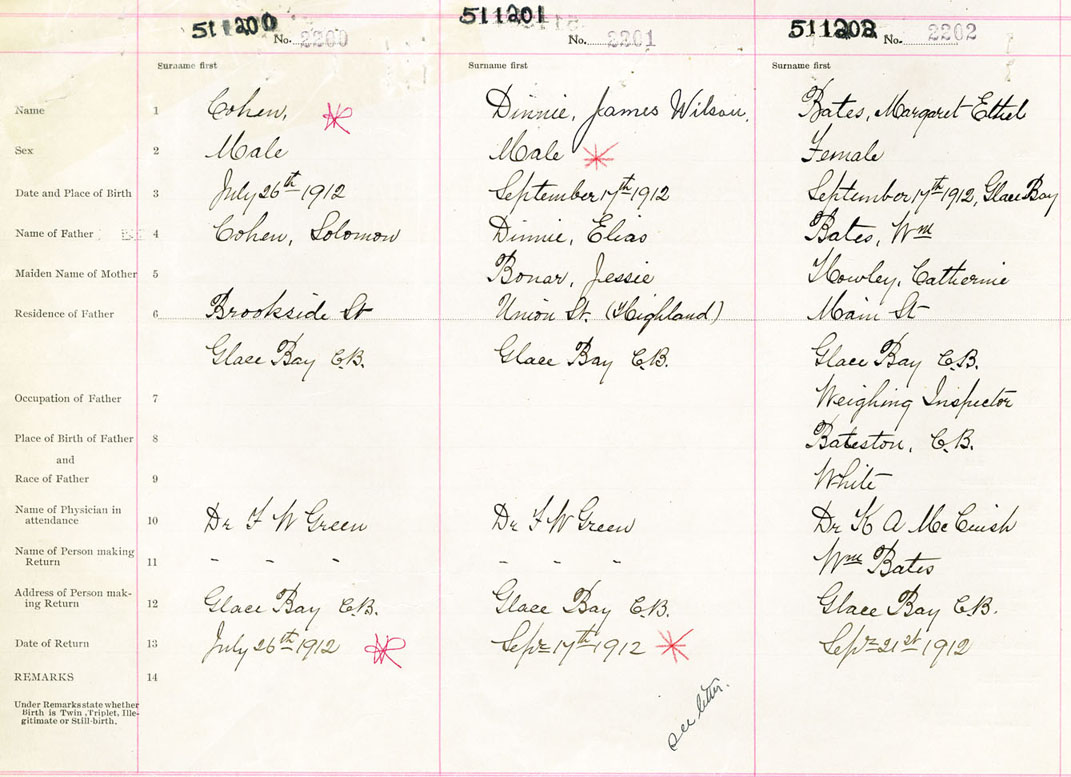 511200 511201 511202
No. 2200 No. 2201 No. 2202
Surname first Surname first Surname first
Name 1 Cohen, Dinnie, James Wilson. Bates, Margaret Ethel
Sex 2 Male Male Female
Date and Place of Birth 3 July 26th 1912 September 17th 1912 September 17th 1912, Glace Bay
Name of Father 4 Cohen, Solomon Dinnie, Elias Bates, Wm
Maiden Name of Mother 5 Bonar, Jessie Howley, Catherine
Residence of Father 6 Brookside St Union St. (Highland) Main St
Glace Bay C.B. Glace Bay C.B. Glace Bay C.B.
Occupation of Father 7 Weighing Inspector
Place of Birth of Father 8 Bateston, C.B.
and
Race of Father 9 White
Name of Physician in
attendance 10 Dr F W Green Dr F W Green Dr K A McCuish
Name of Person making
Return 11 - - - - - - Wm Bates
Address of Person mak-
ing Return 12 Glace Bay C.B. Glace Bay C.B. Glace Bay C.B.
Date of Return 13 July 26th 1912 Sept 17th 1912 Sept 21st 1912
REMARKS 14
Under Remarks state whether
Birth is Twin, Triplet, Ille-
gitimate or Still-birth.
see letter.